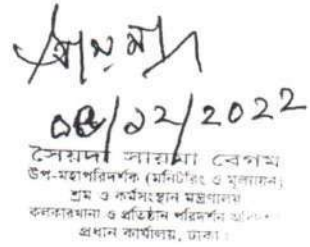 সায়মা
08/12/2022
সৈয়দা সায়মা বেগম
উপ-মহাপরিদর্শক (মনিটরিং ও মূল্যায়ন)
শ্রম ও কর্মসংস্থান মন্ত্রণালয়
কলকারখানা ও প্রতিষ্ঠান পরিদর্শন
প্রধান কার্যালয়, ঢাকা।